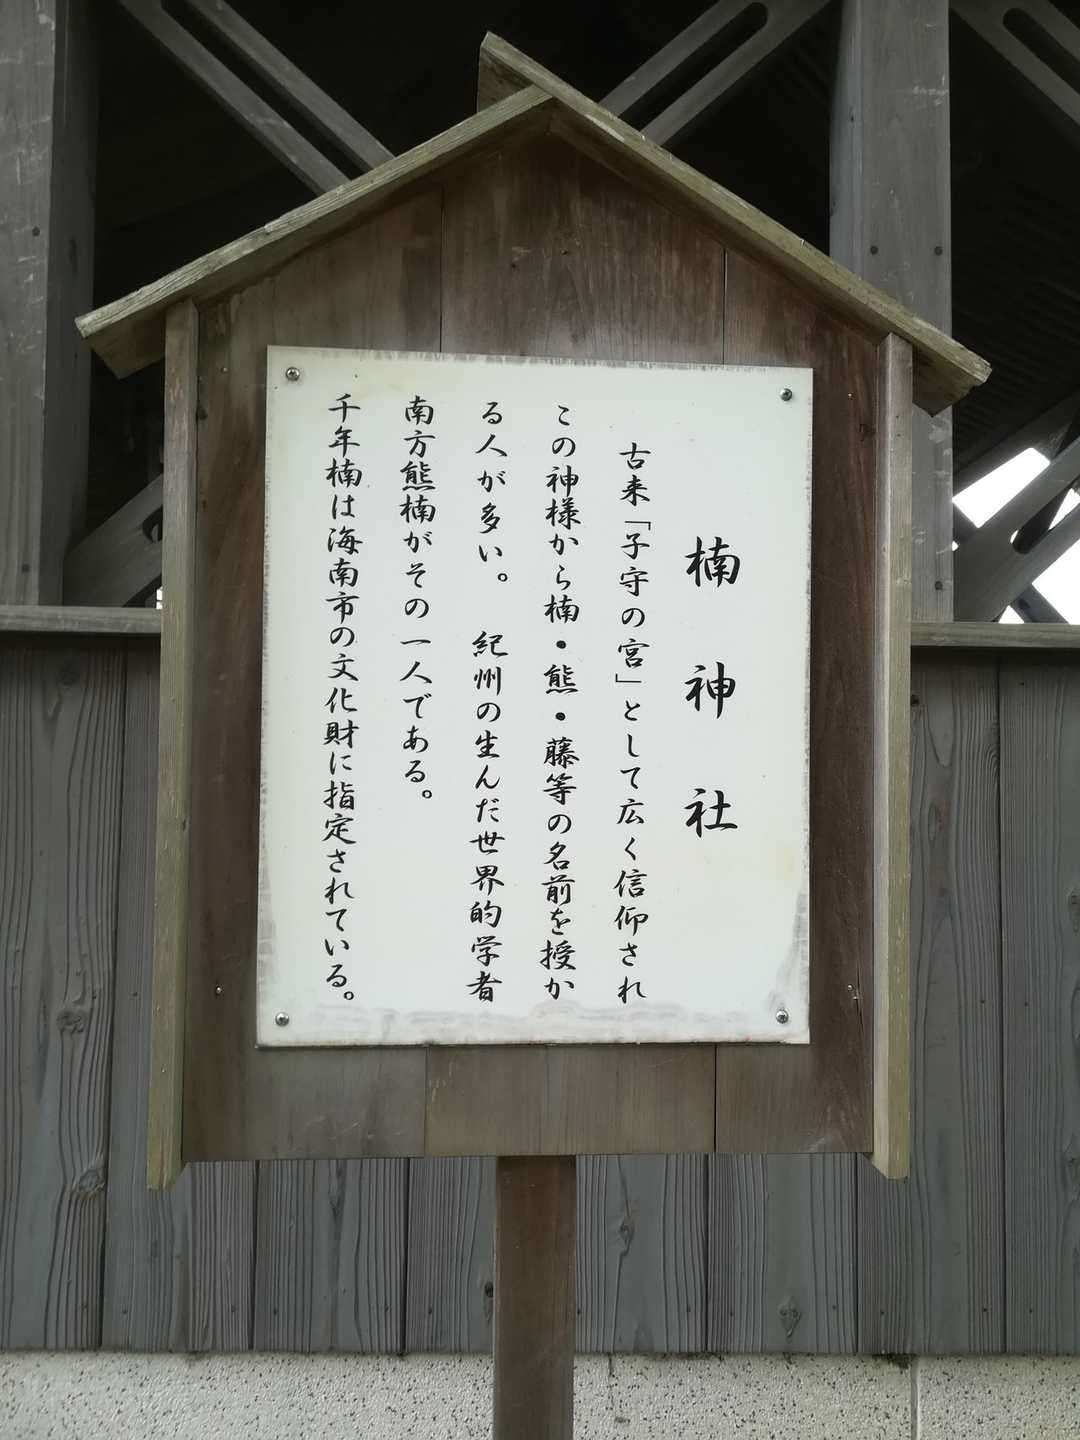 楠神社
古来「子守の宮」として広く信仰され
この神様から楠・熊・藤等の名前を授か
る人が多い。 紀州の生んだ世界的学者
南方熊楠がその一人である。
千年楠は海南市の文化財に指定されている。